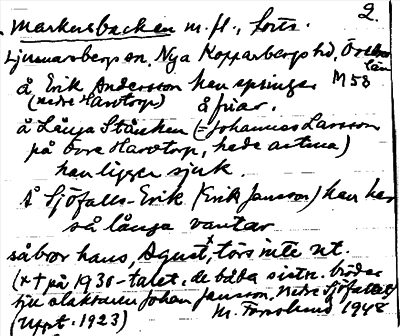 2.
Markusbacken m. fl., forts.
Ljusnarsbergs sn, Nya Kopparbergs hd, Örebro län
å Erik Andersson han springer M58
(nedre Havtorp) å friar.
å Långa Stånken (= Johannes Larsson
på övre Havtorp, hade astma)
han ligger sjuk.
Å Sjöfalls-Erik (Erik Jansson) han har
så långa vantar
så bror hans, Agust, törs inte ut
(x † på 1930-talet, de båda sistn. bröder
till Johan Jansson, Nedre Sjöfallet
(Uppt. 1923) M. Forslund 1948